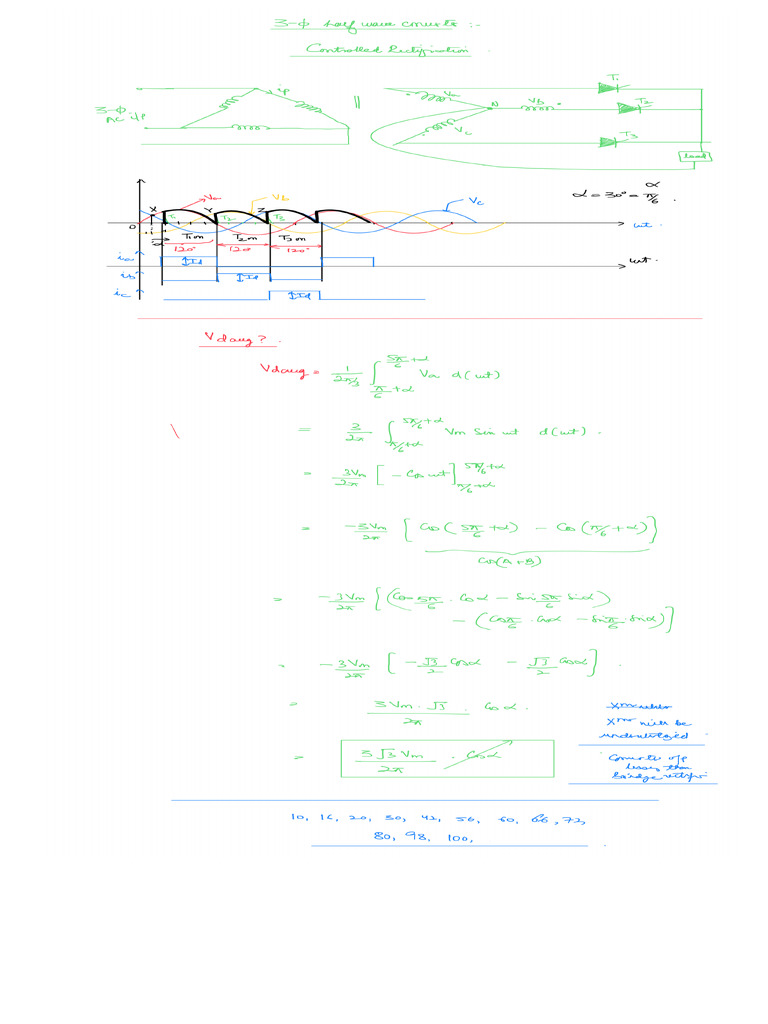 3-ϕ half wave converter :-
Controlled Rectification.
3-ϕ AC i/p
ip
Va
N
Vb
Vc
T1
T2
T3
load
α
α = 30° = π/6.
X Va Y Vb Z Vc
T1 T2 T3
0
ωt.
α T1 on T2 on T3 on
120° 120 120°
ia Id
ωt.
ib Id
ic Id
Vdavg?.
Vdavg = 1/(2π/3) ∫_{π/6+α}^{5π/6+α} Va d(ωt)
= 3/2π ∫_{π/6+α}^{5π/6+α} Vm Sin ωt d(ωt).
= 3Vm/2π [-Cos ωt]_{π/6+α}^{5π/6+α}
= -3Vm/2π [Cos(5π/6+α) - Cos(π/6+α)]
Cos(A+B)
= -3Vm/2π [(Cos 5π/6 . Cosα - Sin 5π/6 Sinα)
- (Cos π/6 . Cosα - Sin π/6 . Sinα)]
= -3Vm/2π [-√3/2 Cosα - √3/2 Cosα].
= 3Vm.√3/2π . Cosα.
= 3√3Vm/2π . Cosα
Xmer
Xmer will be
underutilized
Converter o/p
less than
bridge
10, 16, 20, 30, 42, 50, 60, 66, 72,
80, 98, 100,